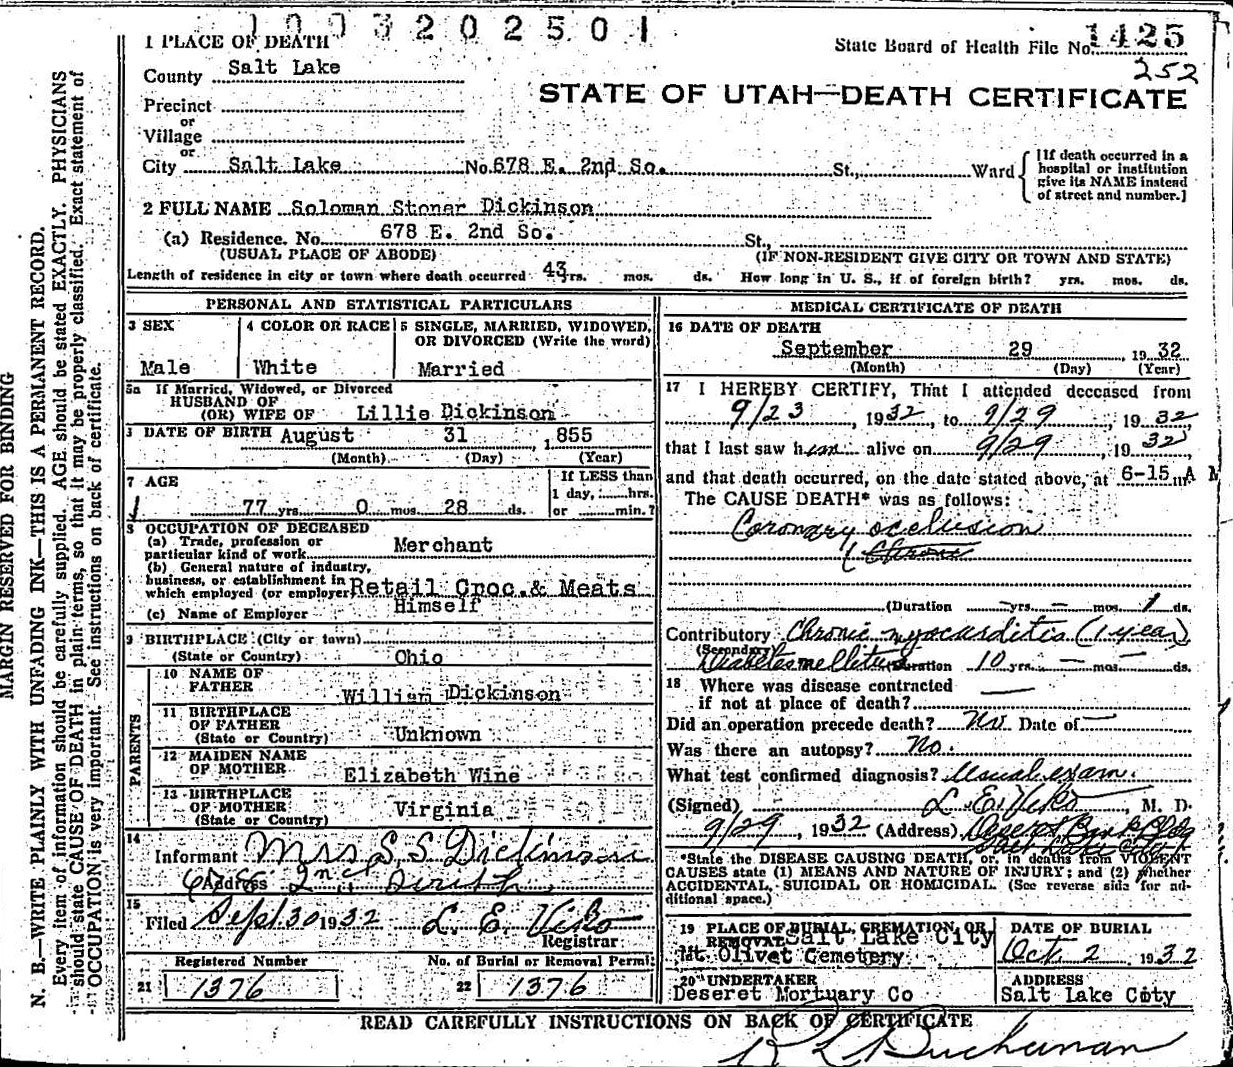 1003202501
1 PLACE OF DEATH
State Board of Health File No. 1425
252
County Salt Lake
STATE OF UTAH—DEATH CERTIFICATE
Precinct
or
Village
or
City Salt Lake No. 678 E. 2nd So. St., Ward
[If death occurred in a hospital or institution give its NAME instead of street and number.]
2 FULL NAME Soloman Stoner Dickinson
(a) Residence. No. 678 E. 2nd So. St.,
(USUAL PLACE OF ABODE) (IF NON-RESIDENT GIVE CITY OR TOWN AND STATE)
Length of residence in city or town where death occurred 43 yrs. mos. ds. How long in U. S., if of foreign birth? yrs. mos. ds.
PERSONAL AND STATISTICAL PARTICULARS
3 SEX
Male
4 COLOR OR RACE
White
5 SINGLE, MARRIED, WIDOWED,
OR DIVORCED (Write the word)
Married
5a If Married, Widowed, or Divorced
HUSBAND OF
(OR) WIFE OF Lillie Dickinson
DATE OF BIRTH August 31 , 1855
(Month) (Day) (Year)
7 AGE
77 yrs. 0 mos. 28 ds.
If LESS than
1 day, hrs.
or min.?
8 OCCUPATION OF DECEASED
(a) Trade, profession or
particular kind of work Merchant
(b) General nature of industry,
business, or establishment in
which employed (or employer) Retail Groc. & Meats
(c) Name of Employer Himself
9 BIRTHPLACE (City or town)
(State or Country) Ohio
PARENTS
10 NAME OF
FATHER William Dickinson
11 BIRTHPLACE
OF FATHER
(State or Country) Unknown
12 MAIDEN NAME
OF MOTHER Elizabeth Wine
13 BIRTHPLACE
OF MOTHER
(State or Country) Virginia
14
Informant Mrs S. S. Dickinson
Address 678 2nd South
15
Filed Sept 30 1932 L. E. Viko
Registrar
Registered Number No. of Burial or Removal Permit
21 1376 22 1376
MEDICAL CERTIFICATE OF DEATH
16 DATE OF DEATH
September 29 , 19 32
(Month) (Day) (Year)
17 I HEREBY CERTIFY, That I attended deceased from
9/23 , 1932, to 9/29 , 1932,
that I last saw him alive on 9/29 , 1932,
and that death occurred, on the date stated above, at 6-15 m A M
The CAUSE DEATH* was as follows:
Coronary occlusion
(Chronic
(Duration — yrs. — mos. 1 ds.
Contributory Chronic myocarditis (1 year)
(Secondary)
Diabetes mellitus Duration 10 yrs. — mos. — ds.
18 Where was disease contracted
if not at place of death? —
Did an operation precede death? No Date of —
Was there an autopsy? No.
What test confirmed diagnosis? Usual exam.
(Signed) L. E. Viko , M. D.
9/29 , 1932 (Address) Deseret Bank Bldg
Salt Lake City
*State the DISEASE CAUSING DEATH, or, in deaths from VIOLENT
CAUSES state (1) MEANS AND NATURE OF INJURY; and (2) whether
ACCIDENTAL, SUICIDAL OR HOMICIDAL. (See reverse side for ad-
ditional space.)
19 PLACE OF BURIAL, CREMATION, OR
REMOVAL Salt Lake City
Mt. Olivet Cemetery
DATE OF BURIAL
Oct. 2 1932
20 UNDERTAKER
Deseret Mortuary Co
ADDRESS
Salt Lake City
READ CAREFULLY INSTRUCTIONS ON BACK OF CERTIFICATE
R L Buchanan
MARGIN RESERVED FOR BINDING
N. B.—WRITE PLAINLY WITH UNFADING INK—THIS IS A PERMANENT RECORD.
Every item of information should be carefully supplied. AGE should be stated EXACTLY. PHYSICIANS
should state CAUSE OF DEATH in plain terms, so that it may be properly classified. Exact statement of
OCCUPATION is very important. See instructions on back of certificate.